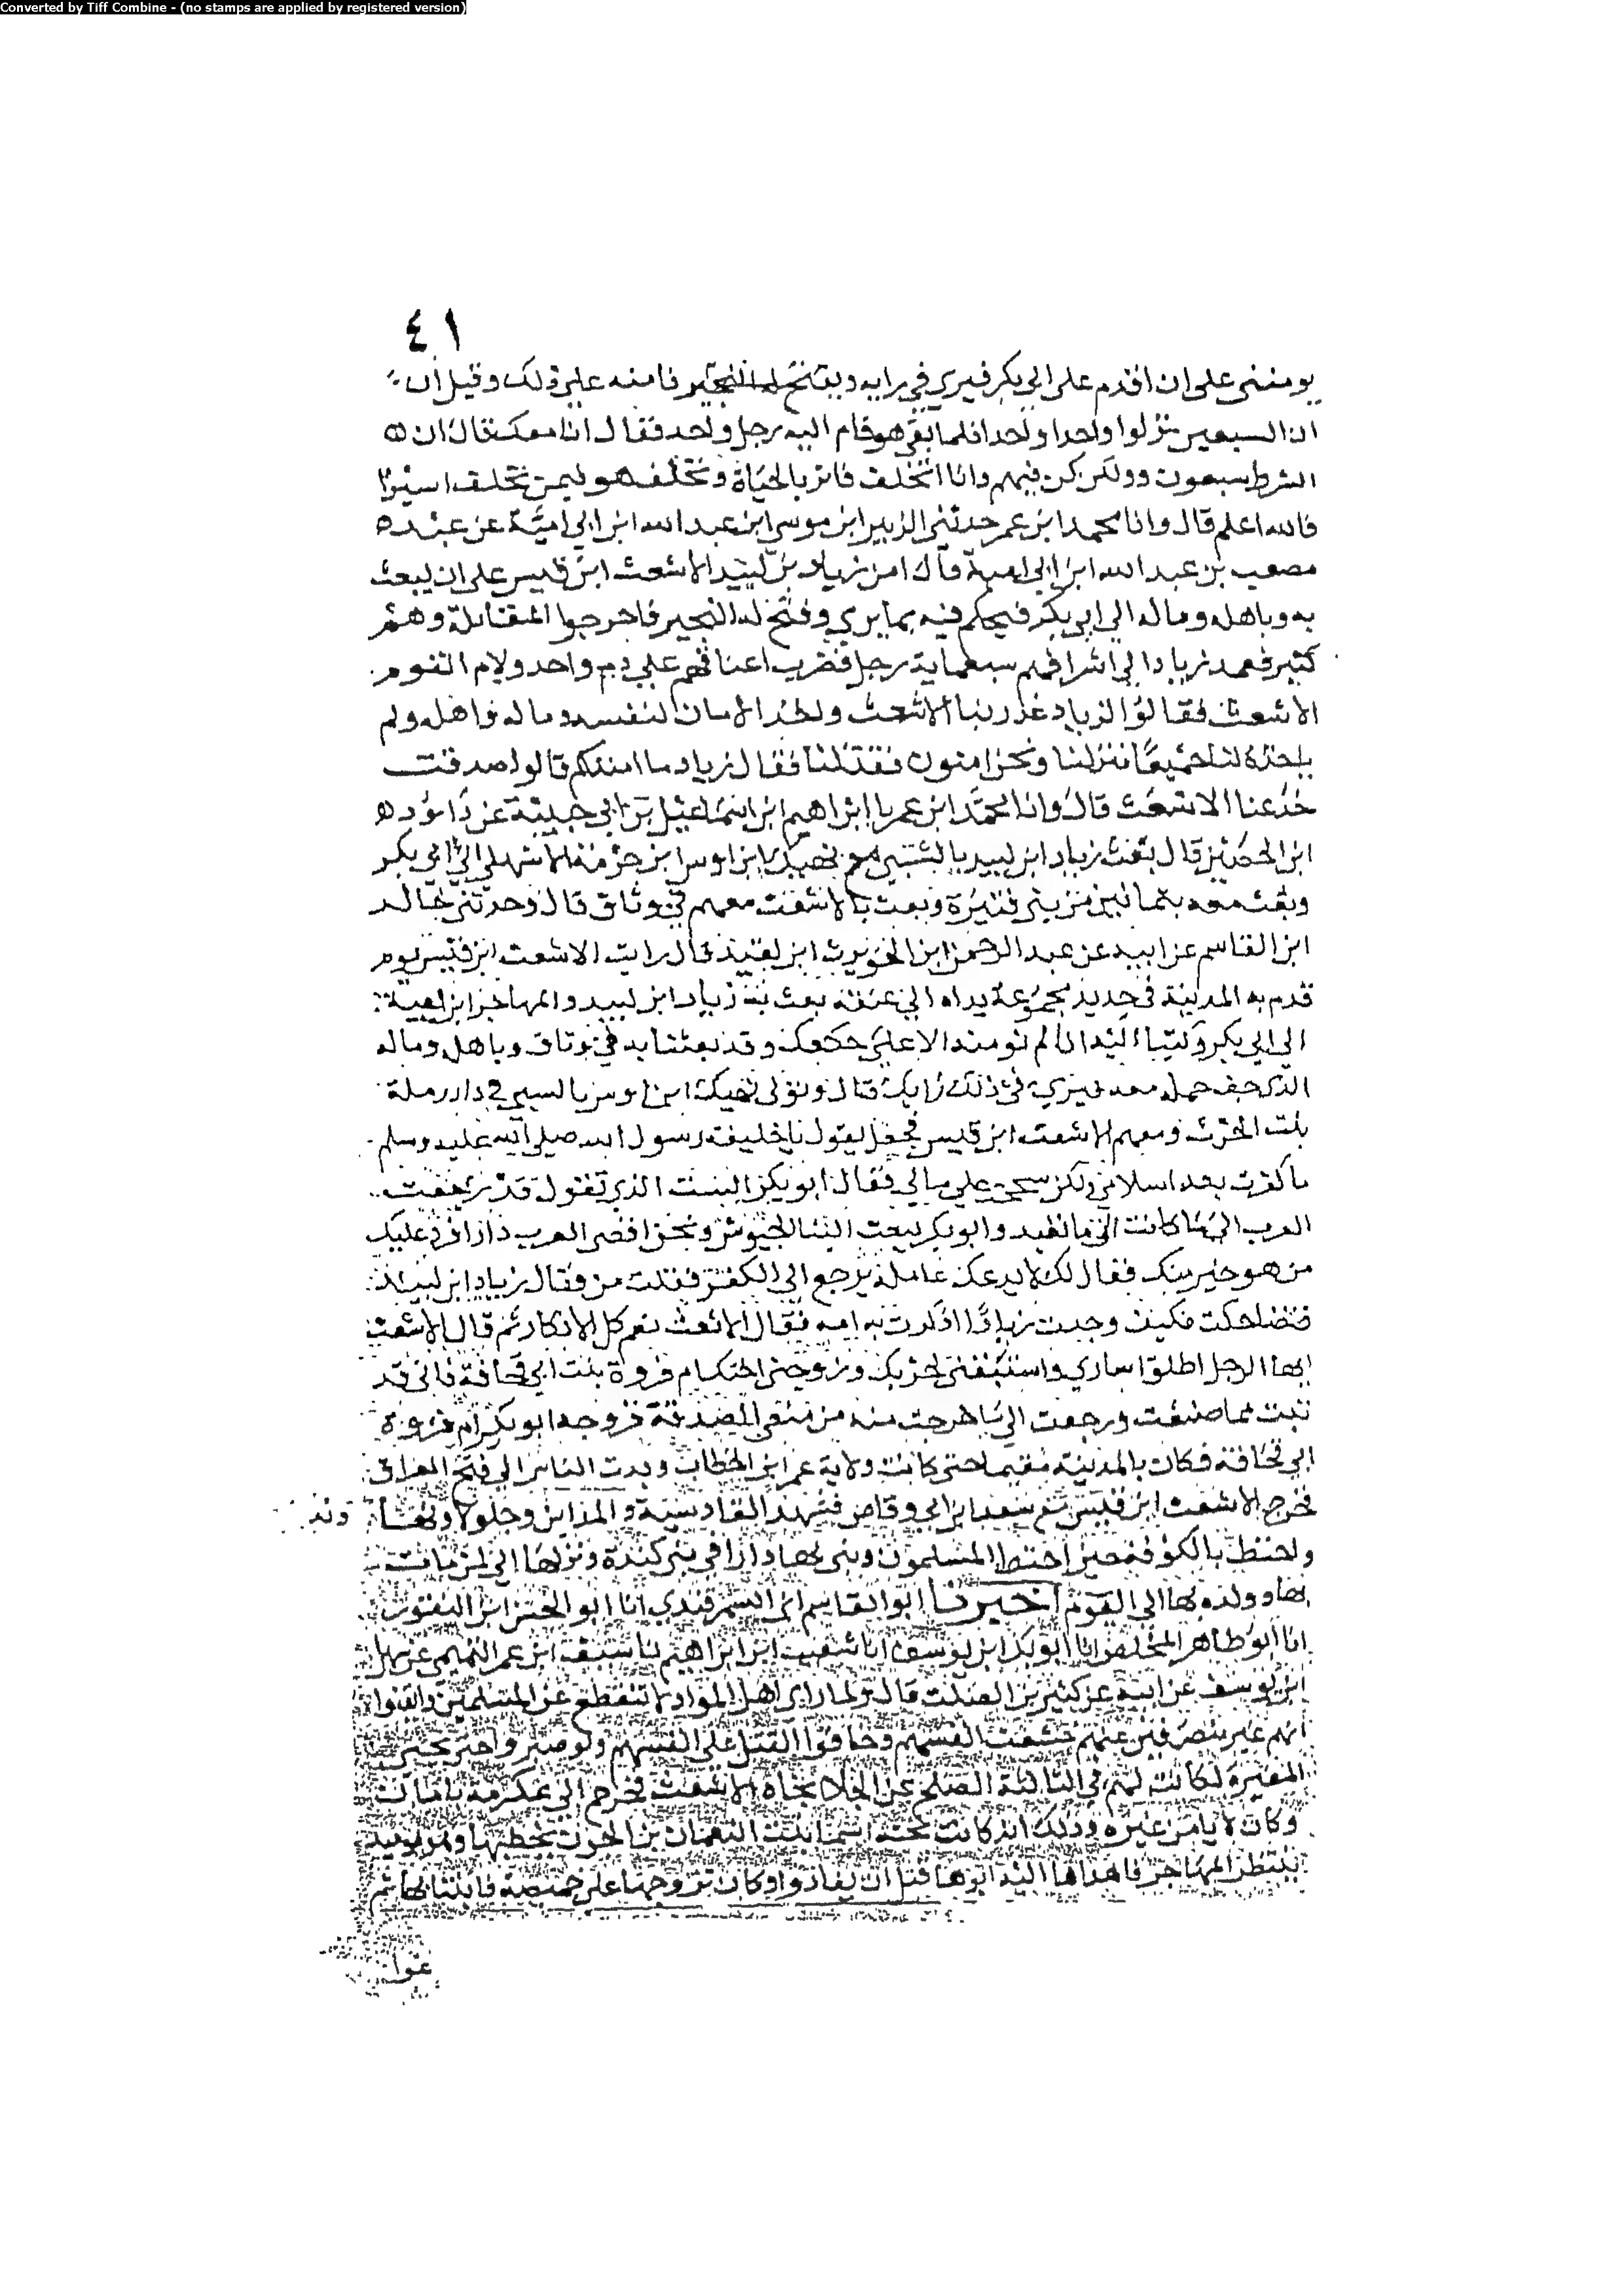 Converted by Tiff Combine - (no stamps are applied by registered version)
٤١
يومنني على ان اقدم على ابي بكر فيري في رايه ويفتح له النجير فامنه على ذلك وقيل ان
ان السبعين نزلوا واحدا واحدا فلما بقي هو قام اليه رجل واحد فقال انا معك قال ان
الشرط سبعون وولكن كن فيهم وانا اتخلف فاثر بالحياة وتخلف هو ليمن تخلف اسيرا
فالله اعلم قال وانا محمد ابن عمر حدثني الزبير ابن موسى ابن عبد الله ابن ابي امية عن عبده
مصعب بن عبد الله ابن ابي امية قال امن زياد بن لبيد الاشعث ابن قيس على ان يبعث
به وباهله وماله الي ابي بكر فيحكم فيه بما يري وفتح له النجير فاخرجوا المقاتلة وهم
كثير فعمد زياد الي اشرافهم سبعماية رجل فضرب اعناقهم علي دم واحد ولام القوم
الاشعث فقالوا لزياد غدر بنا الاشعث واخذ الامان لنفسه وماله واهله ولم
ياخذه لنا جميعا فنزلنا ونحن امنون فقتلنا فقال زياد ما امنتكم قالوا صدقت
خدعنا الاشعث قال وانا محمد ابن عمر يا ابراهيم ابن اسماعيل بن ابي حبيبة عن داود
ابن الحصين قال بعث زياد ابن لبيد بالسبي مع نهيك ابن اوس ابن خزمة الاشهلي الي ابي بكر
وبعث معه بثمانين من بني قتيرة وبعث بالاشعث معهم في وثاق قال وحدثني خالد
ابن القاسم عن ابيه عن عبد الرحمن ابن الحويرث ابن نقيذ قال رايت الاشعث ابن قيس يوم
قدم به المدينة في حديد مجموعة يداه الي عنقه بعث به زياد ابن لبيد والمهاجر ابن امية
الي ابي بكر وكتبا اليه انا لم نومنه الا علي حكمك وقد بعثنا به في وثاق وباهله وماله
الذي خف حمله معه فتري في ذلك رايك قال ونزل نهيك ابن اوس بالسبي في دار رملة
بنت الحرث ومعهم الاشعث ابن قيس فجعل يقول يا خليفة رسول الله صلي الله عليه وسلم
ما كفرت بعد اسلامي ولكن شححت علي مالي فقال ابو بكر الست الذي تقول قد رجعت
العرب الي ما كانت الي ما تعبد وابو بكر يبعث الينا الجيوش ونحن اقصي العرب دارا فرد عليك
من هو خير منك فقال لك لا يدعك عامله ترجع الي الكفر فقلت من فقال زياد ابن لبيد
فتضاحكت فكيف وجدت زيادا اذكرت به امه فقال الاشعث نعم كل الاذكار ثم قال الاشعث
ايها الرجل اطلق اساري واستبقني لحربك وزوجني اختك ام فروة بنت ابي قحافة فاني قد
تبت مما صنعت ورجعت الي ما خرجت منه من منعي الصدقة فزوجه ابو بكر ام فروة
ابي قحافة فكان بالمدينة مقيما حتى كانت ولاية عمر ابن الخطاب وندب الناس الي فتح العراق
فخرج الاشعث ابن قيس مع سعد ابن ابي وقاص فشهد القادسية والمداين وجلولا ونها وند
واختط بالكوفة حين اختط المسلمون وبنى بها دارا في بني كندة ونزلها الي ان مات
بها وولده بها الي اليوم اخبرنا ابو القاسم ابن السمرقندي انا ابو الحسن ابن النقور
انا ابو طاهر المخلص انا ابو بكر ابن يوسف انا شعيب ابن ابراهيم نا سيف ابن عمر التميمي عن سهل
ابن يوسف عن ابيه عن كثير بن الصلت قال ولما راي اهل المواد لا تنقطع عن المسلمين وايقنوا
انهم غير منصرفين عنهم خشعت انفسهم وخافوا القتل على انفسهم ولو صبروا حتى يجي
المغيرة لكانت لهم في الثالثة الصلح عن الجلا نجاة الاشعث فخرج الي عكرمة بامان
وكان لا يامن غيره وذلك انه كانت تحته اسما بنت النعمان بن الجون يخطبها وهو يوميذ
ينتظر المهاجر فاهداها اليه ابوها قبل ان يغادوا وكان تزوجها علي فابتنا بها ثم